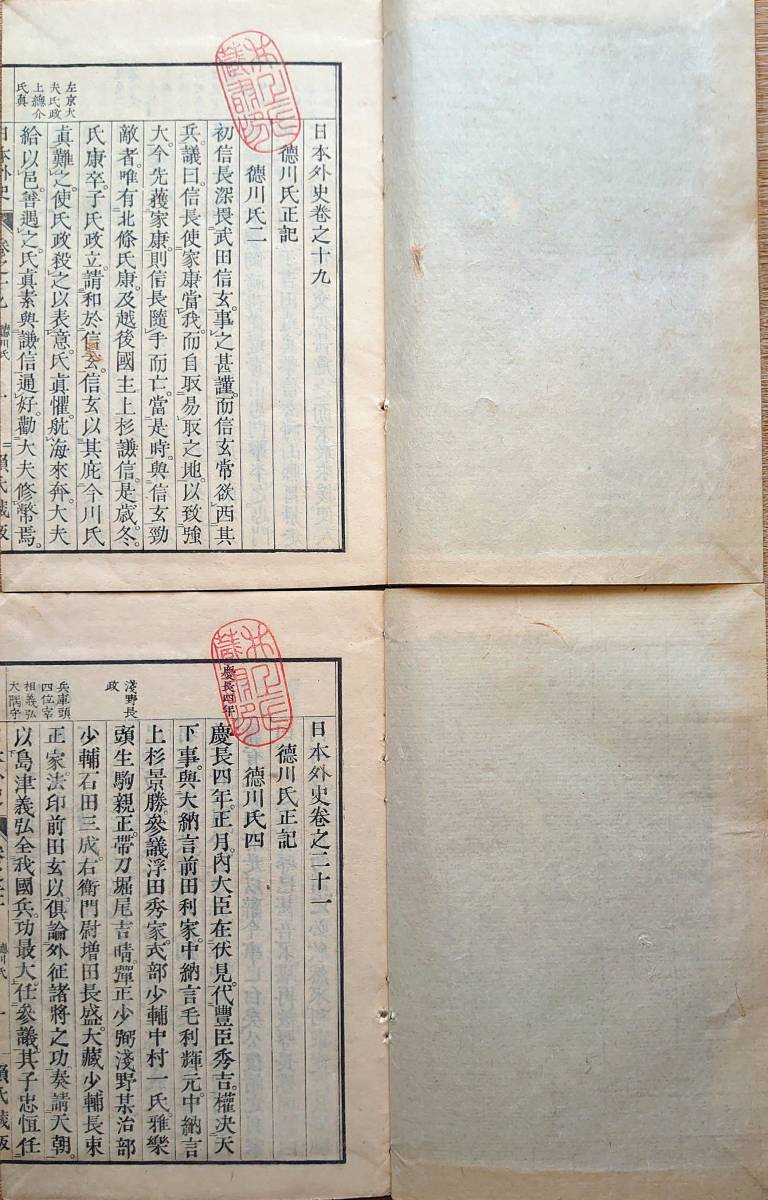 日本外史卷之十九
德川氏正記
德川氏二
初信長深畏武田信玄。事之甚謹。而信玄常欲西其
兵。議曰。信長使家康當我。而自取易取之地。以致強
大。今先獲家康。則信長隨手而亡。當是時。與信玄勁
敵者。唯有北條氏康。及越後國主上杉謙信。是歲冬。
氏康卒。子氏政立。請和於信玄。信玄以其庇今川氏
眞難之。使氏政殺之以表意。氏眞懼。航海來奔。大夫
給以邑。善遇之。氏眞素與謙信通好。勸大夫修幣焉。
左京大
夫氏政
上總介
氏眞
日本外史
德川氏
一
賴氏藏版
日本外史卷之二十一
德川氏正記
德川氏四
慶長四年
慶長四年。正月。內大臣在伏見。代豐臣秀吉。權決天
下事。與大納言前田利家。中納言毛利輝元。中納言
上杉景勝。參議浮田秀家。式部少輔中村一氏。雅樂
頭生駒親正。帶刀堀尾吉晴。彈正少弼淺野某。治部
少輔石田三成。右衛門尉增田長盛。大藏少輔長束
正家。法印前田玄以。俱論外征諸將之功。奏請天朝。
以島津義弘全我國兵。功最大。任參議。其子忠恒任
淺野長
政
兵庫頭
四位宰
相義弘
大隅守
德川氏
一
賴氏藏版